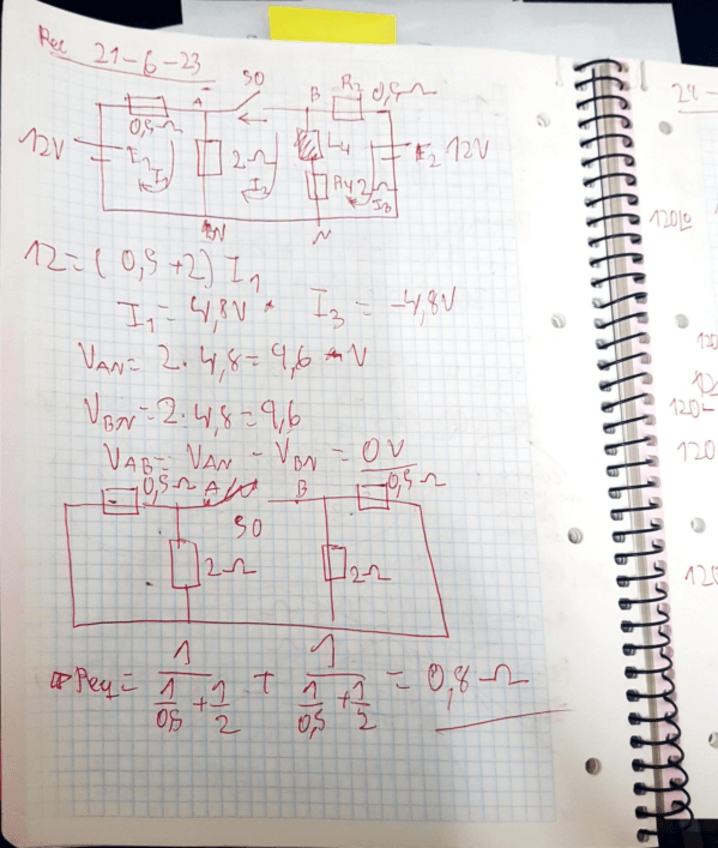 Rec 21-6-23
SO
A B R2 0,5Ω
0,5Ω
12V I1 2Ω I2 L4 E2 12V
R4 2Ω I3
N N
12=(0,5+2) I1
I1= 4,8V I3 = -4,8V
VAN= 2. 4,8= 9,6 V
VBN=2.4,8=9,6
VAB= VAN - VBN = 0V
0,5Ω A B 0,5Ω
SO
2Ω 2Ω
Req= 1/(1/0,5 + 1/2) + 1/(1/0,5 + 1/2) = 0,8Ω
24-
120
120
12
120
120
120